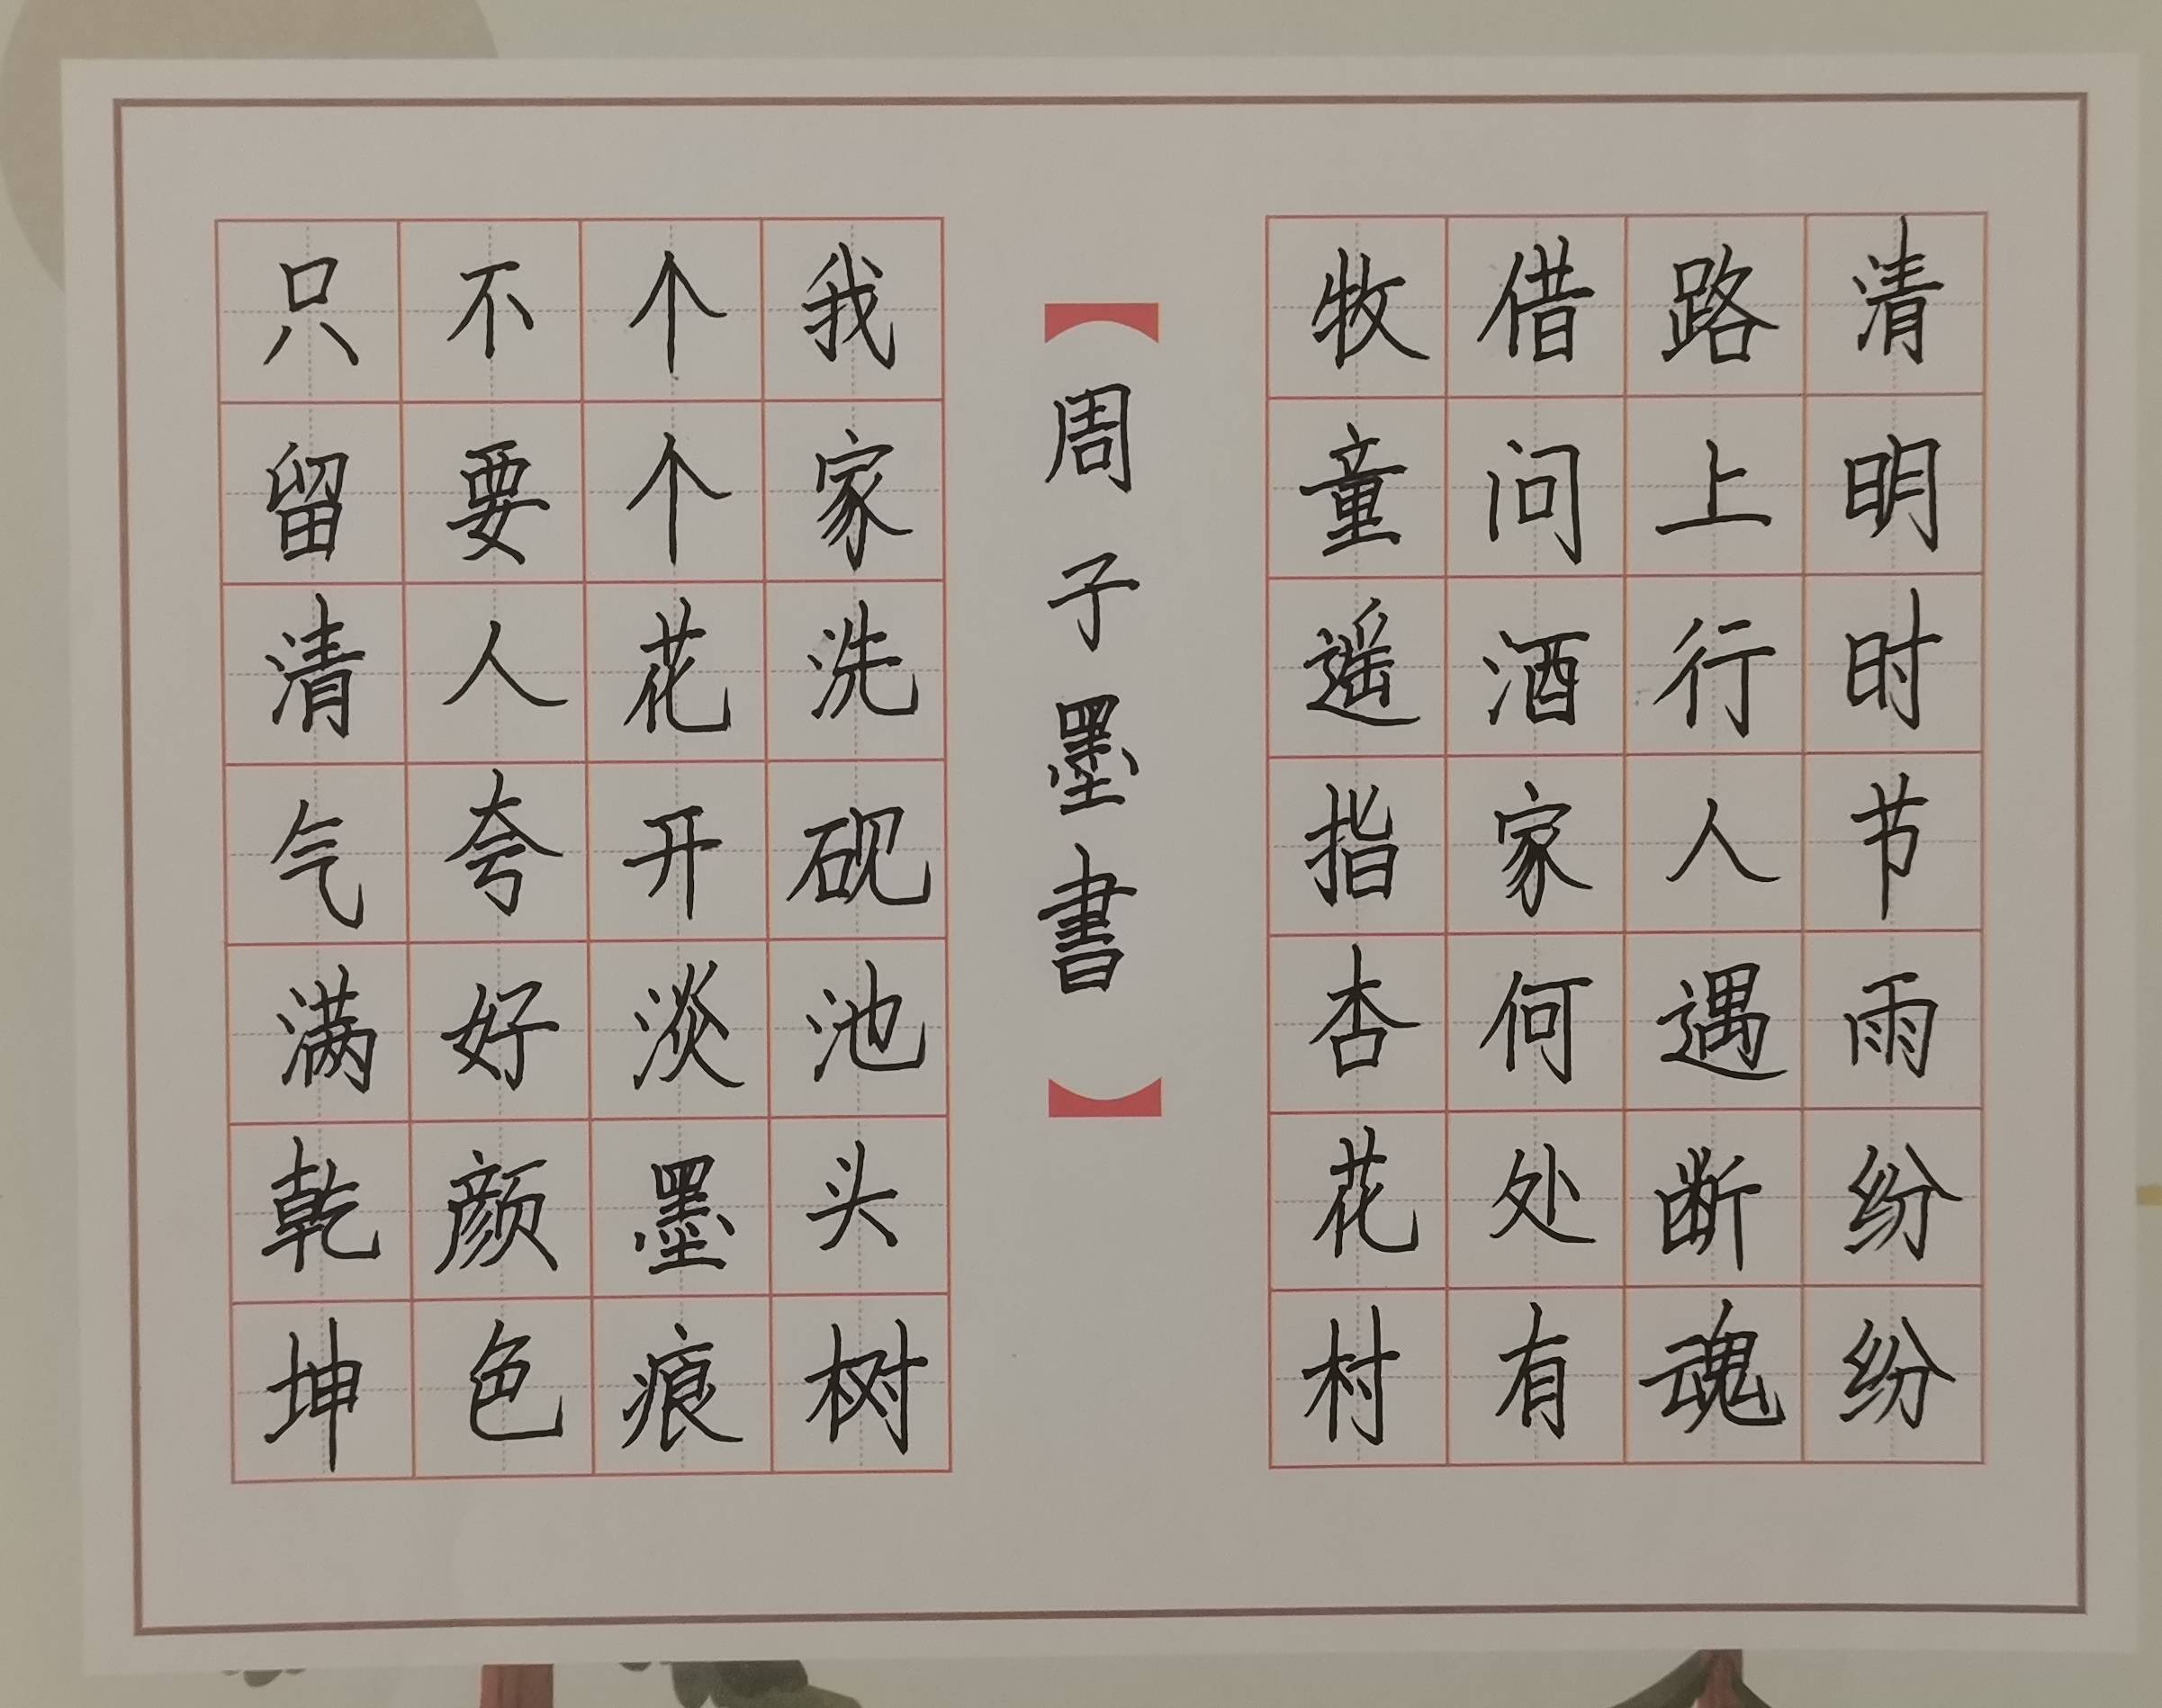 清明时节雨纷纷
路上行人遇断魂
借问酒家何处有
牧童遥指杏花村
【周子墨書】
我家洗砚池头树
个个花开淡墨痕
不要人夸好颜色
只留清气满乾坤